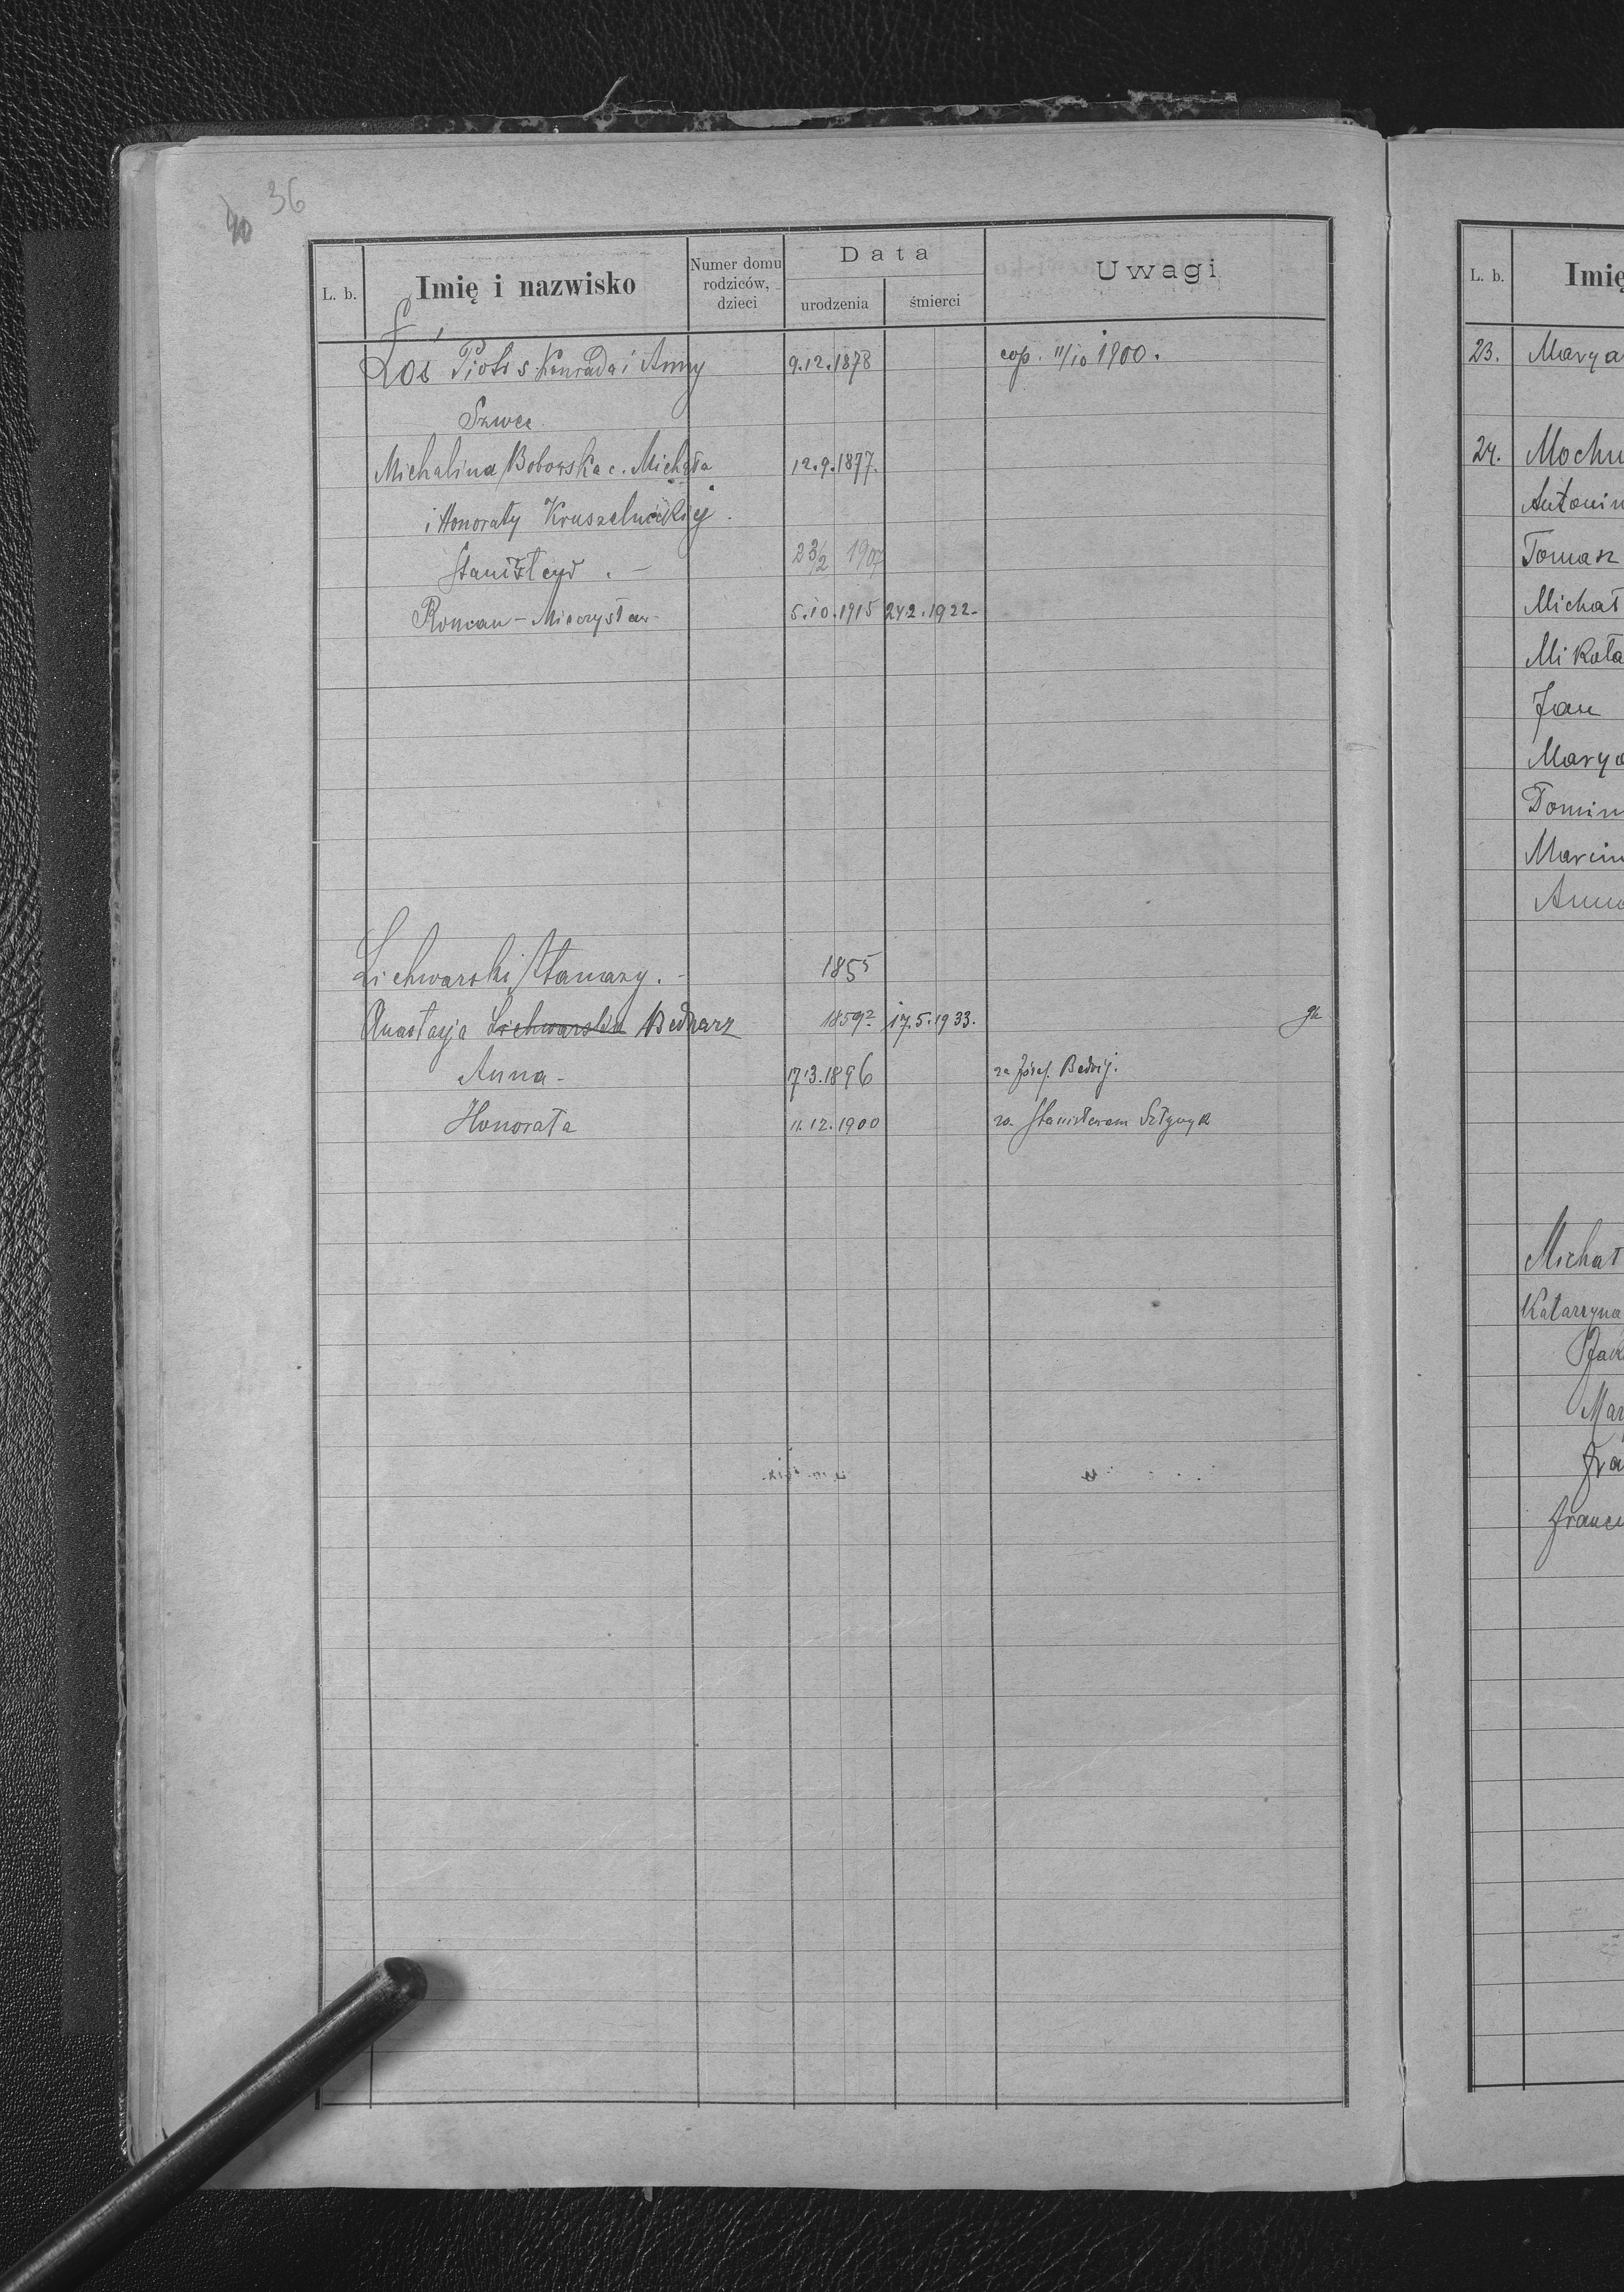 36
40
L. b.
Imię i nazwisko
Numer domu rodziców, dzieci
Data
urodzenia
śmierci
Uwagi
Łoś Piotr s. Konrada i Anny 9.12.1878 cop. 11/10 1900.
Szwec
Michalina Bobowska c. Michała 12.9.1877.
i Honoraty Kruszelnickiej.
23/2 1907
Roman - Mieczysław 5.10.1915 24.2.1922.
Lichwarski Atanazy. 1855
Anastazja Lichwarska Bednarz 1859 17.5.1933. gk
Anna - 17.3.1896 za Józef. Bedrij.
Honorata 11.12.1900 za Stanisławem
L. b.
Imię
23. Marya
24. Mochn
Antonin
Tomasz
Michał
Mikoła
Jan
Marya
Domin
Marcin
Anna
Michał
Katarzyna
Mar
Fra
Franci